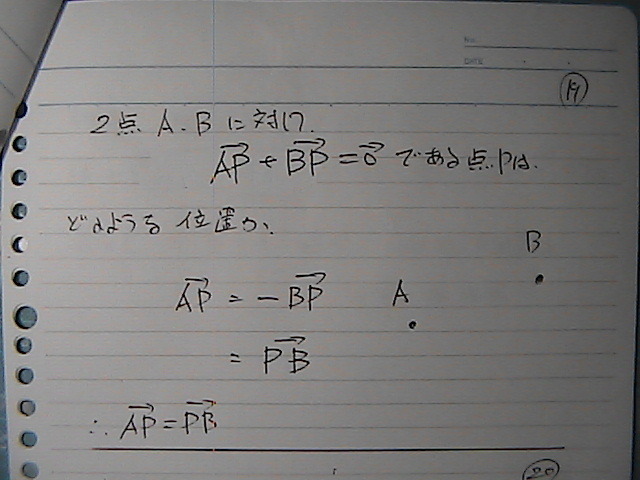 No.
DATE
⑲
2点 A.B に対して.
\overrightarrow{AP} + \overrightarrow{BP} = \vec{0} である点Pは.
どのような 位置か.
B
\overrightarrow{AP} = -\overrightarrow{BP} A
= \overrightarrow{PB}
∴ \overrightarrow{AP} = \overrightarrow{PB}
⑳